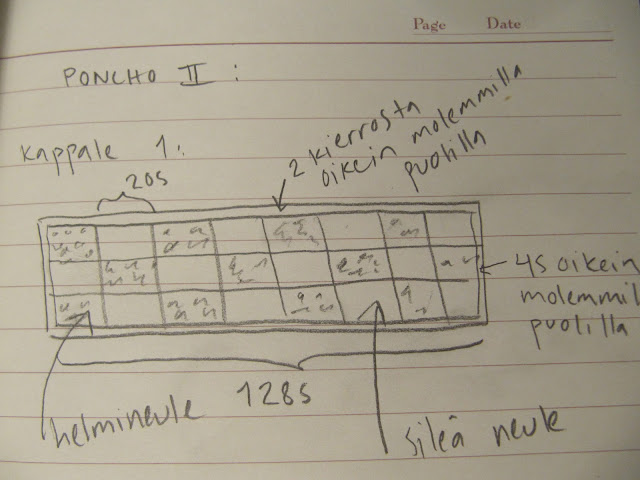 Page Date
PONCHO II :
Kappale 1:
20s
2 kierrosta
oikein molemmilla
puolilla
4s oikein
molemmil
puolilla
128s
helmineule
sileä neule